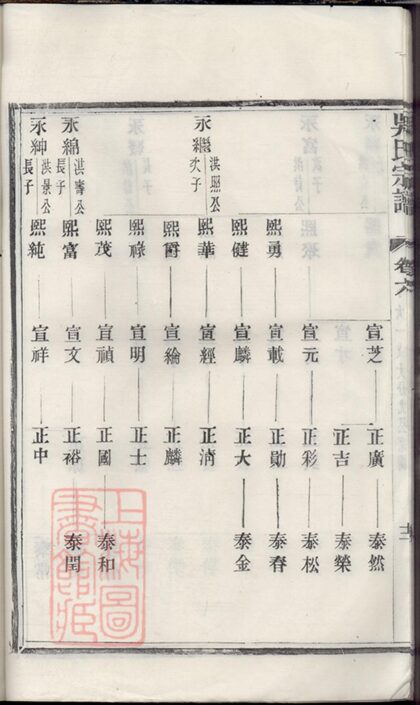 吳氏宗譜
卷六
宣芝
正廣
泰然
正吉
泰榮
宣元
正彩
泰松
熙勇
宣載
正勛
泰春
熙健
宣麟
正大
泰金
永繼
洪熙公
次子
熙華
宣經
熙爵
宣綸
正麟
熙祿
宣明
正士
熙茂
宣禎
正國
泰和
永綿
洪壽公
長子
熙富
宣文
正裕
泰閏
永紳
洪景公
長子
熙純
宣祥
正中
上海圖
書館藏